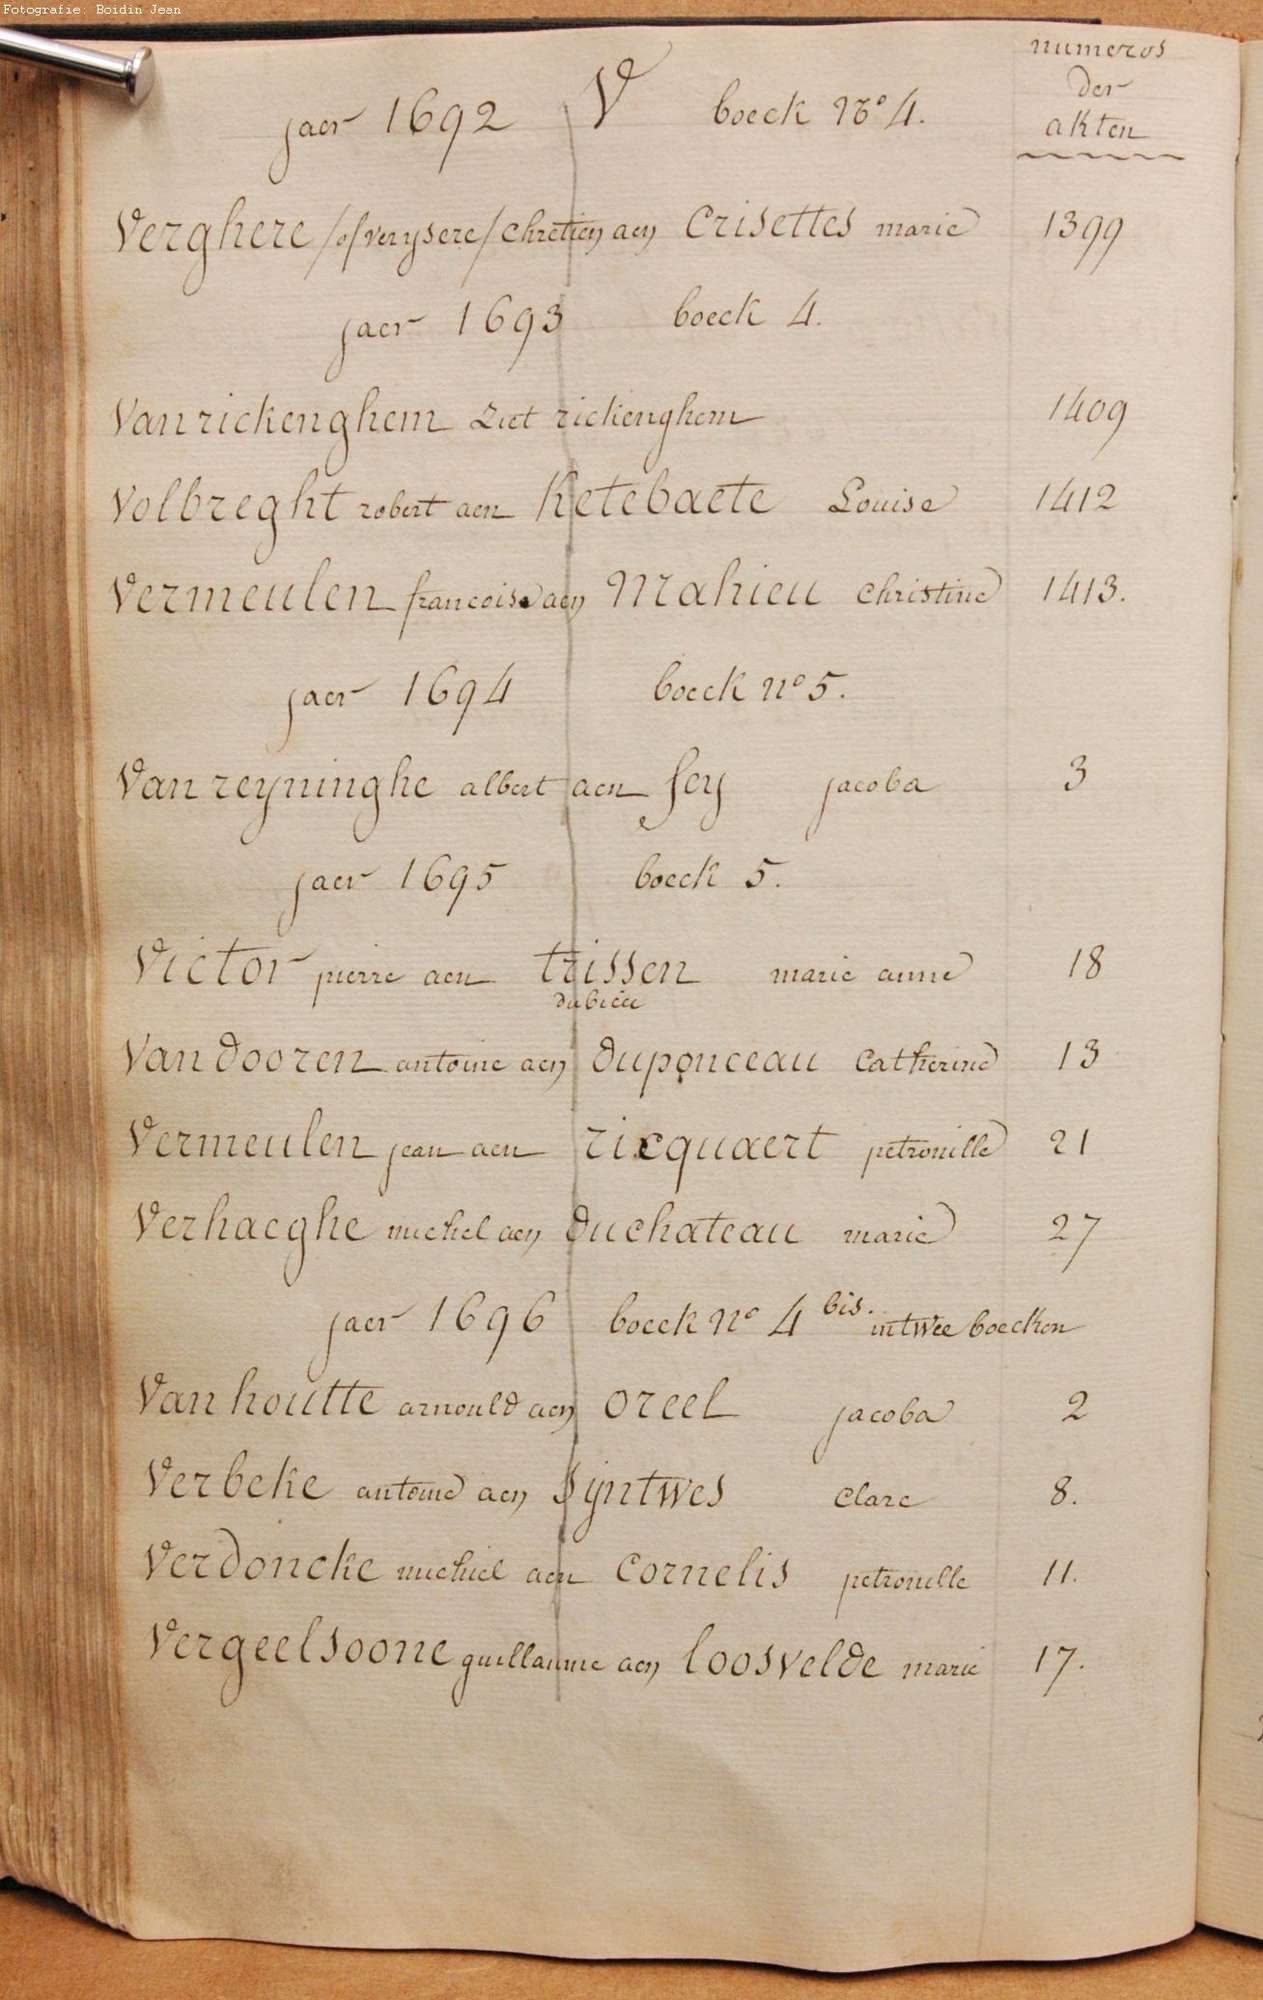 Fotografie: Boidin Jean
numeros
der
akten
jaer 1692 V boeck No 4.
Verghere /of verysere/ chretien aen Crisettes marie 1399
jaer 1693 boeck 4.
Vanrickenghem ziet rickenghem 1409
Volbreght robert aen Ketebaete Louise 1412
Vermeulen francoise aen Mahieu christine 1413.
jaer 1694 boeck no 5.
Van reyninghe albert aen fey jacoba 3
jaer 1695 boeck 5.
Victor pierre aen trissen marie anne 18
dubieu
Van dooren antoine aen duponceau Catherine 13
Vermeulen jean aen ricquaert petronille 21
Verhaeghe michel aen duchateau marie 27
jaer 1696 boeck No 4 bis. in twee boecken
Van houtte arnould aen oreel jacoba 2
Verbeke antoine aen Syntwes clare 8.
Verdoncke michiel aen cornelis petronille 11.
Vergeelsoone guillaume aen loosvelde marie 17.